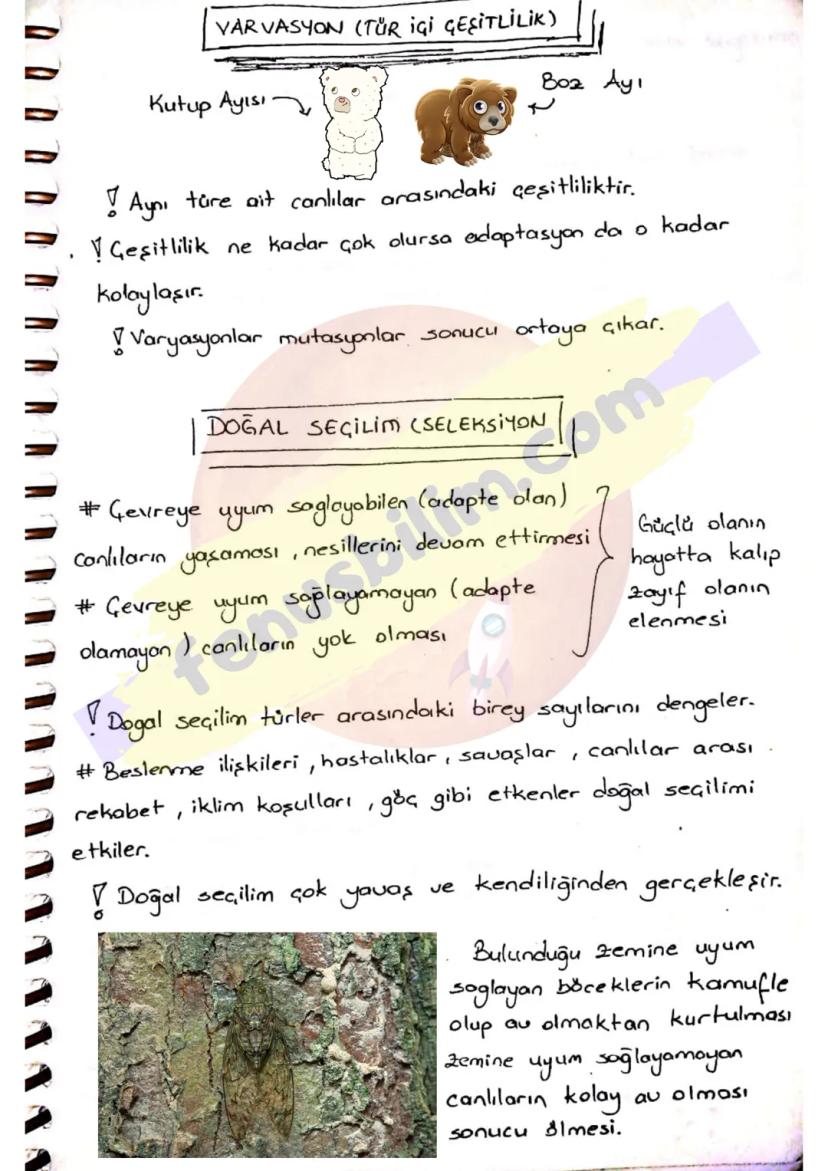 VARVASYON (TÜR İÇİ ÇEŞİTLİLİK)
Kutup Ayısı
Boz Ayı
! Aynı türe ait canlılar arasındaki çeşitliliktir.
! Çeşitlilik ne kadar çok olursa adaptasyon da o kadar
kolaylaşır.
! Varyasyonlar mutasyonlar sonucu ortaya çıkar.
DOĞAL SEÇİLİM (SELEKSİYON
# Çevreye uyum sağlayabilen (adapte olan)
canlıların yaşaması, nesillerini devam ettirmesi
# Çevreye uyum sağlayamayan (adapte
olamayan) canlıların yok olması
Güçlü olanın
hayatta kalıp
zayıf olanın
elenmesi
fenusbilim.com
! Dogal seçilim türler arasındaki birey sayılarını dengeler.
# Beslenme ilişkileri, hastalıklar, savaşlar, canlılar arası
rekabet, iklim koşulları, göç gibi etkenler doğal seçilimi
etkiler.
! Doğal seçilim çok yavaş ve kendiliğinden gerçekleşir.
Bulunduğu zemine uyum
sağlayan böceklerin kamufle
olup av olmaktan kurtulması
zemine uyum sağlayamayan
canlıların kolay av olması
sonucu ölmesi.